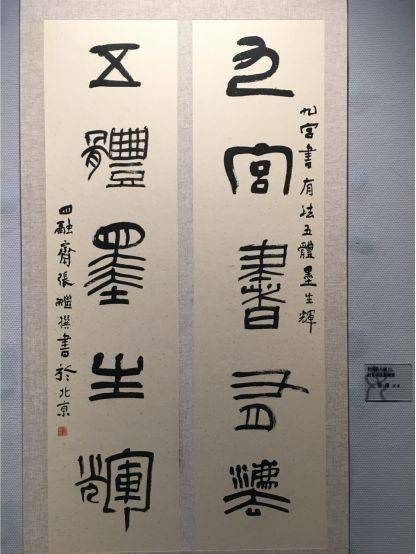 九宫書有灋
九宫書有法五體墨生輝
五體墨生輝
四融齋張繼撰書於北京